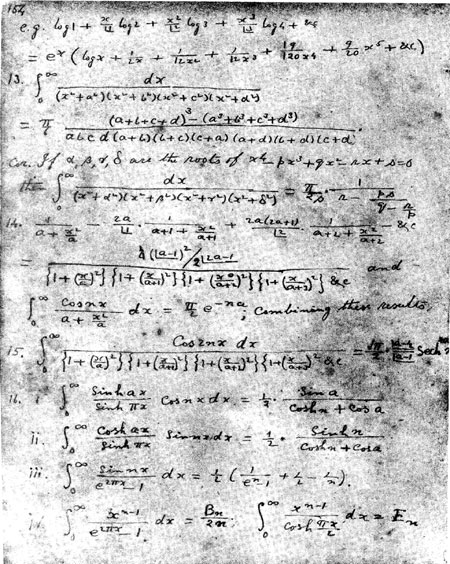 154
e.g. log1 + x/⌊1 log2 + x²/⌊2 log3 + x³/⌊3 log4 + &c
= eˣ (log x + 1/2x + 1/12x² + 1/12x³ + 19/120x⁴ + 9/20x⁵ + &c)
13. ∫₀^∞ dx / (x²+a²)(x²+b²)(x²+c²)(x²+d²)
= π/ (a+b+c+d)³ − (a³+b³+c³+d³) / abcd(a+b)(b+c)(c+a)(a+d)(b+d)(c+d).
Cor. If α, β, γ, δ are the roots of x⁴ − px³ + qx² − rx + s = 0
then ∫₀^∞ dx / (x²+α²)(x²+β²)(x²+γ²)(x²+δ²) = π/2s · 1 / r − ps / q − r/p
14. 1 / a + x²/a − 2a/⌊1 · 1 / a+1 + x²/a+1 + 2a(2a+1)/⌊2 · 1 / a+2 + x²/a+2 − &c
= (⌊a−1)²/2⌊2a−1 / {1+(x/a)²}{1+(x/a+1)²}{1+(x/a+2)²}{1+(x/a+3)²} &c and
∫₀^∞ Cos nx / a + x²/a dx = π/2 e^−na; combining these results,
15. ∫₀^∞ Cos 2nx dx / {1+(x/a)²}{1+(x/a+1)²}{1+(x/a+2)²}{1+(x/a+3)² &c = √π/2 · ⌊a−½ / ⌊a−1 Sech
16. i ∫₀^∞ Sinh ax / Sinh πx Cos nx dx = ½ · Sin a / cosh n + cos a
ii. ∫₀^∞ Cosh ax / Sinh πx Sin nx dx = ½ · Sinh n / cosh n + cos a
iii. ∫₀^∞ Sin nx / e^2πx − 1 dx = ½ (1/eⁿ−1 + ½ − 1/n).
∫₀^∞ xⁿ⁻¹ / e^2πx − 1 dx = Bₙ/2n. ∫₀^∞ xⁿ⁻¹ / cosh πx/2 dx = Eₙ